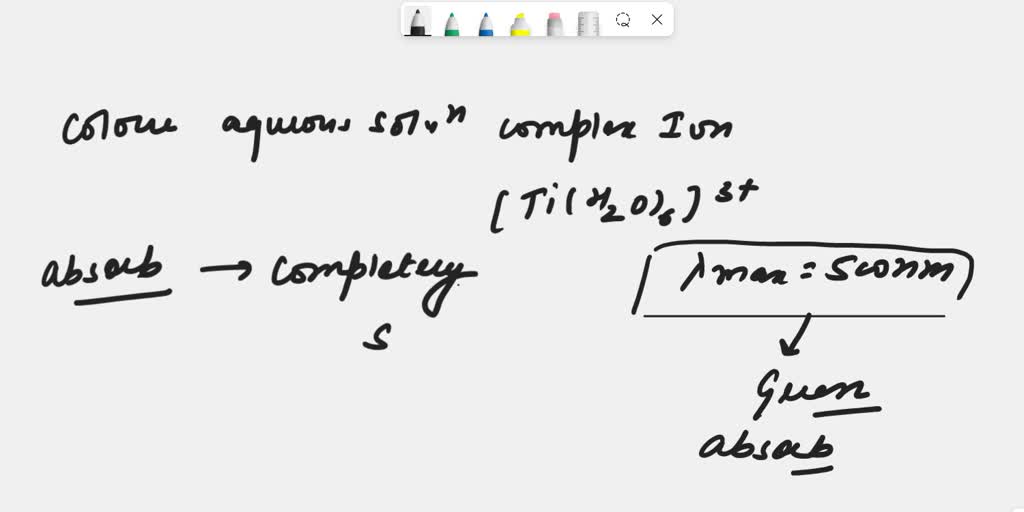 colour aqueous solvⁿ complex Ion
[Ti(H₂O)₆]³⁺
absorb → completely
λmax = 500nm
S
Green
absorb